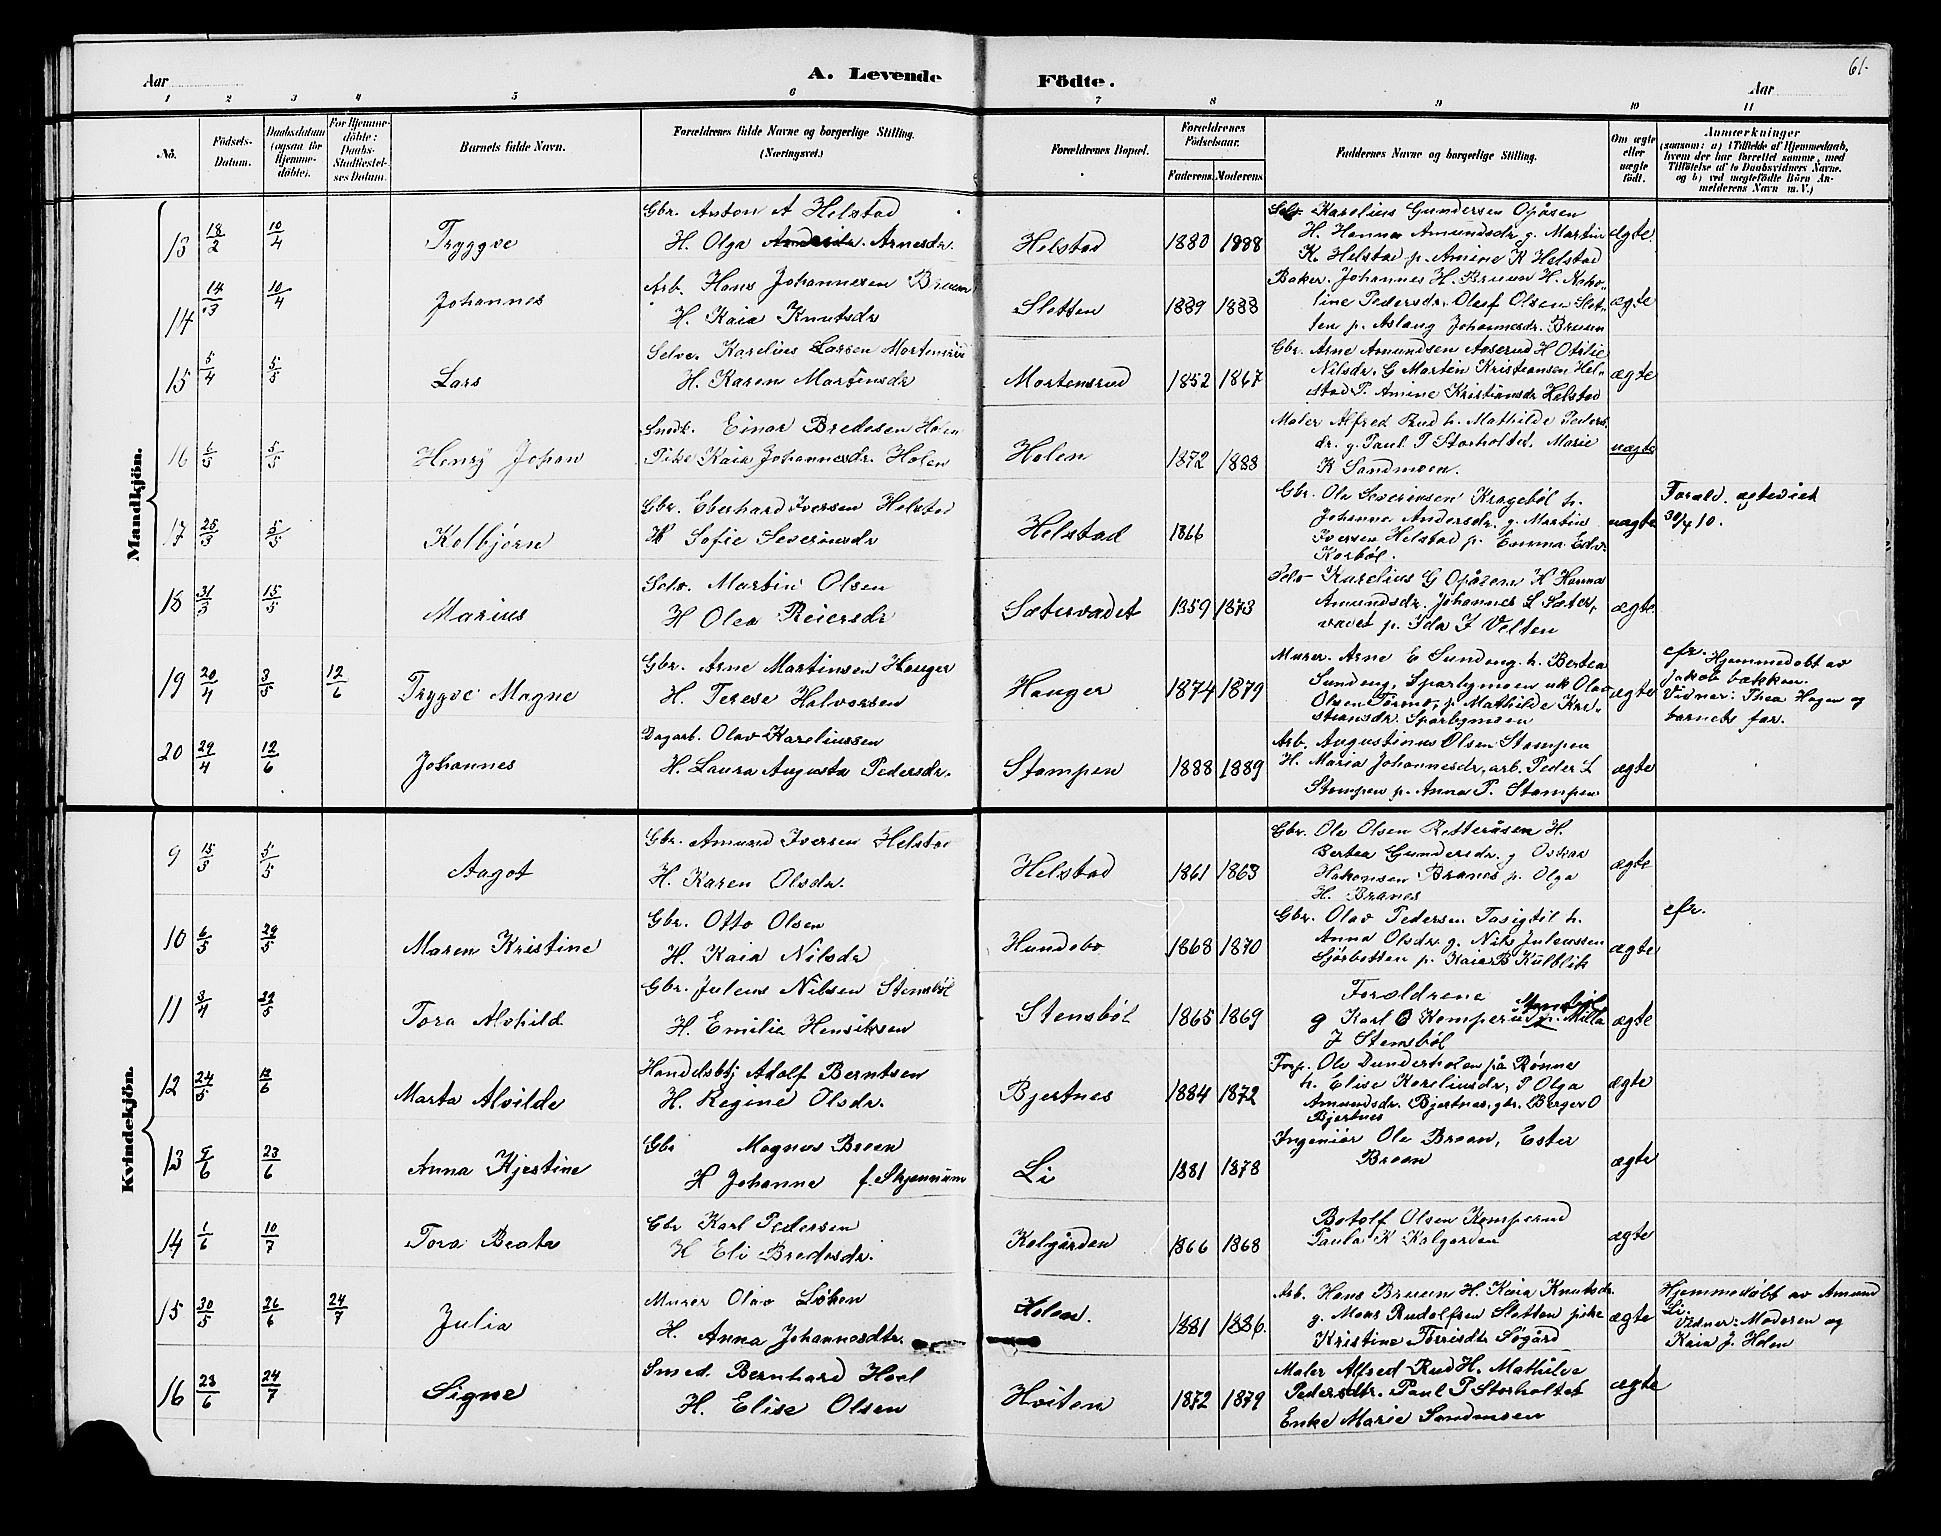 61.
Aar
A. Levende Födte.
Aar
1 2 3 4 5 6 7 8 9 10 11
No.
Födsels-Datum.
Daabsdatum (ogsaa for Hjemmedöbte).
For Hjemmedöbte: Daabs-Stadfæstelses Datum.
Barnets fulde Navn.
Forældrenes fulde Navne og borgerlige Stilling. (Næringsvei.)
Forældrenes Bopæl.
Forældrenes Födselsaar.
Faderens. Moderens.
Faddernes Navne og borgerlige Stilling.
Om ægte eller uægte födt.
Anmærkninger
(saasom: a) i Tilfælde af Hjemmedaab, hvem der har forrettet samme, med Tilföielse af to Daabsvidners Navne. og b) ved uægtefödte Börn Anmelderens Navn m. V.)
Mandkjön.
13 18/2 10/4 Tryggve
Gbr. Anton A Helstad
H. Olga Arnesdr.
Helstad 1880 1888
Selv. Karelius Gundersen Opåsen
H. Hanna Amundsdr g. Martin
K. Helstad p. Amine K Helstad
ægte
14 14/3 10/4 Johannes
Arb. Hans Johannesen Bruun
H. Kaia Knutsdr
Sletten 1889 1888
Baker. Johannes H. Bruun H.
Pedersdr. Oluf Olsen Slet-
ten p. Aslaug Johannesdr. Bruun
ægte
15 5/4 5/5 Lars
Selve. Karelius Larsen Mortensrud
H. Karen Martinsdr
Mortensrud 1852 1867
Gbr. Arne Amundsen Aaserud H Otilie
Nilsdr. G Martin Kristiansen Hel-
stad P. Amine Kristiansdr Helstad
ægte
16 6/3 5/5 Henry Johan
Snedk. Einar Bredesen Holen
Pike Kaia Johannesdr. Holen
Holen 1872 1888
Maler Alfred Rud h. Mathilde Peders
dr. g. Paul P Storholtet, Marie
K Sandmoen.
uægte
17 25/3 5/5 Kolbjørn
Gbr. Eberhard Iversen Helstad
H Sofie Severinsdr
Helstad 1866
Gbr. Ole Severinsen Kragebøl h.
Johanna Andersdr. g. Martin
Iversen Helstad p. Emma Edv.
Korbøl.
uægte
Foræld. ægteviet
30/4 10.
18 31/3 15/5 Marius
Selv. Martin Olsen
H Olea Reiersdr
Sætervadet 1859 1873
Selv Karelius G Opåsen H Hanna
Amundsdr. Johannes L Sæter,
vadet p. Ida J Velten
ægte
19 20/4 3/5 12/6 Trygve Magne
Gbr. Arne Martinsen Hauger
H. Terese Halvorsen
Hauger 1874 1879
Murer. Arne E Sundeng. h. Bertea
Sundeng, Sparbymoen uk Olav
Olsen Tørmo, p. Mathilde Kri-
stiansdr. Sparbymoen
ægte
cfr. Hjemmedøbt av
Jakob bækken.
Vidner: Thea Hagen og
barnets far.
20 29/4 12/6 Johannes
Dagarb. Olav Kareliussen
H. Laura Augusta Pedersdr.
Stampen 1888 1889
Arb. Augustinus Olsen Stampen
H. Maria Johannesdr, arb. Peder L
Stampen p. Anna P. Stampen
ægte
Kvindekjön.
9 15/3 5/5 Aagot
Gbr. Amund Iversen Helstad
H. Karen Olsdr.
Helstad 1861 1863
Gbr. Ole Olsen Retteråsen H.
Bertea Gundersdr. g Oskar
Håkonsen Brånes p. Olga
H. Brånes
ægte
10 6/5 29/5 Maren Kristine
Gbr. Otto Olsen
H. Kaia Nilsdr
Hundebo 1868 1870
Gbr. Olav Pedersen Tasigtil h.
Anna Olsdr. g. Nils Juliussen
Sjørbotten p. Kaia B Kulblik
ægte
cfr.
11 3/4 29/5 Tora Alvhild
Gbr. Julius Nilsen Stensbøl
H. Emilie Henriksen
Stensbøl 1865 1869
Forældrene
g Karl O Komperud p. Milla
J Stensbøl
ægte
12 24/5 12/6 Marta Alvilde
Handelsbtj Adolf Berntsen
H. Regine Olsdr.
Bjertnes 1884 1872
Forp. Ole Dunderholen på Rønne
h. Elise Kareliusdr, P Olga
Amundsdr. Bjertnes, gbr. Birger O
Bjertnes
ægte
13 5/6 23/6 Anna Kjestine
Gbr Magnus Breen
H Johanne f. Skjennum
Li 1881 1878
Ingeniør Ole Breen, Ester
Breen
ægte
14 1/6 10/7 Tora Beate
Gbr Karl Pedersen
H Eli Bredesdr.
Kolgården 1866 1868
Botolf Olsen Komperud
Paula K Kolgården
ægte
15 30/5 26/6 24/7 Julia
Murer Olav Løken
H. Anna Johannesdtr.
Holen. 1881 1886.
Arb. Hans Bruun H. Kaia Knutsdr
g. Moar Rudolfsen Sletten pike
Kristine Torrisdtr Søgård
ægte
Hjemmedøbt av Amund
Li.
Vidner: Moderen og
Kaia J. Holen
16 23/6 24/7 Signe
Smed. Bernhard Hoel
H. Elise Olsen
Hviten 1872 1879
Maler Alfred Rud H. Mathilde
Pedersdtr. Paul P Storholtet
Enke Marie Sandmoen
ægte